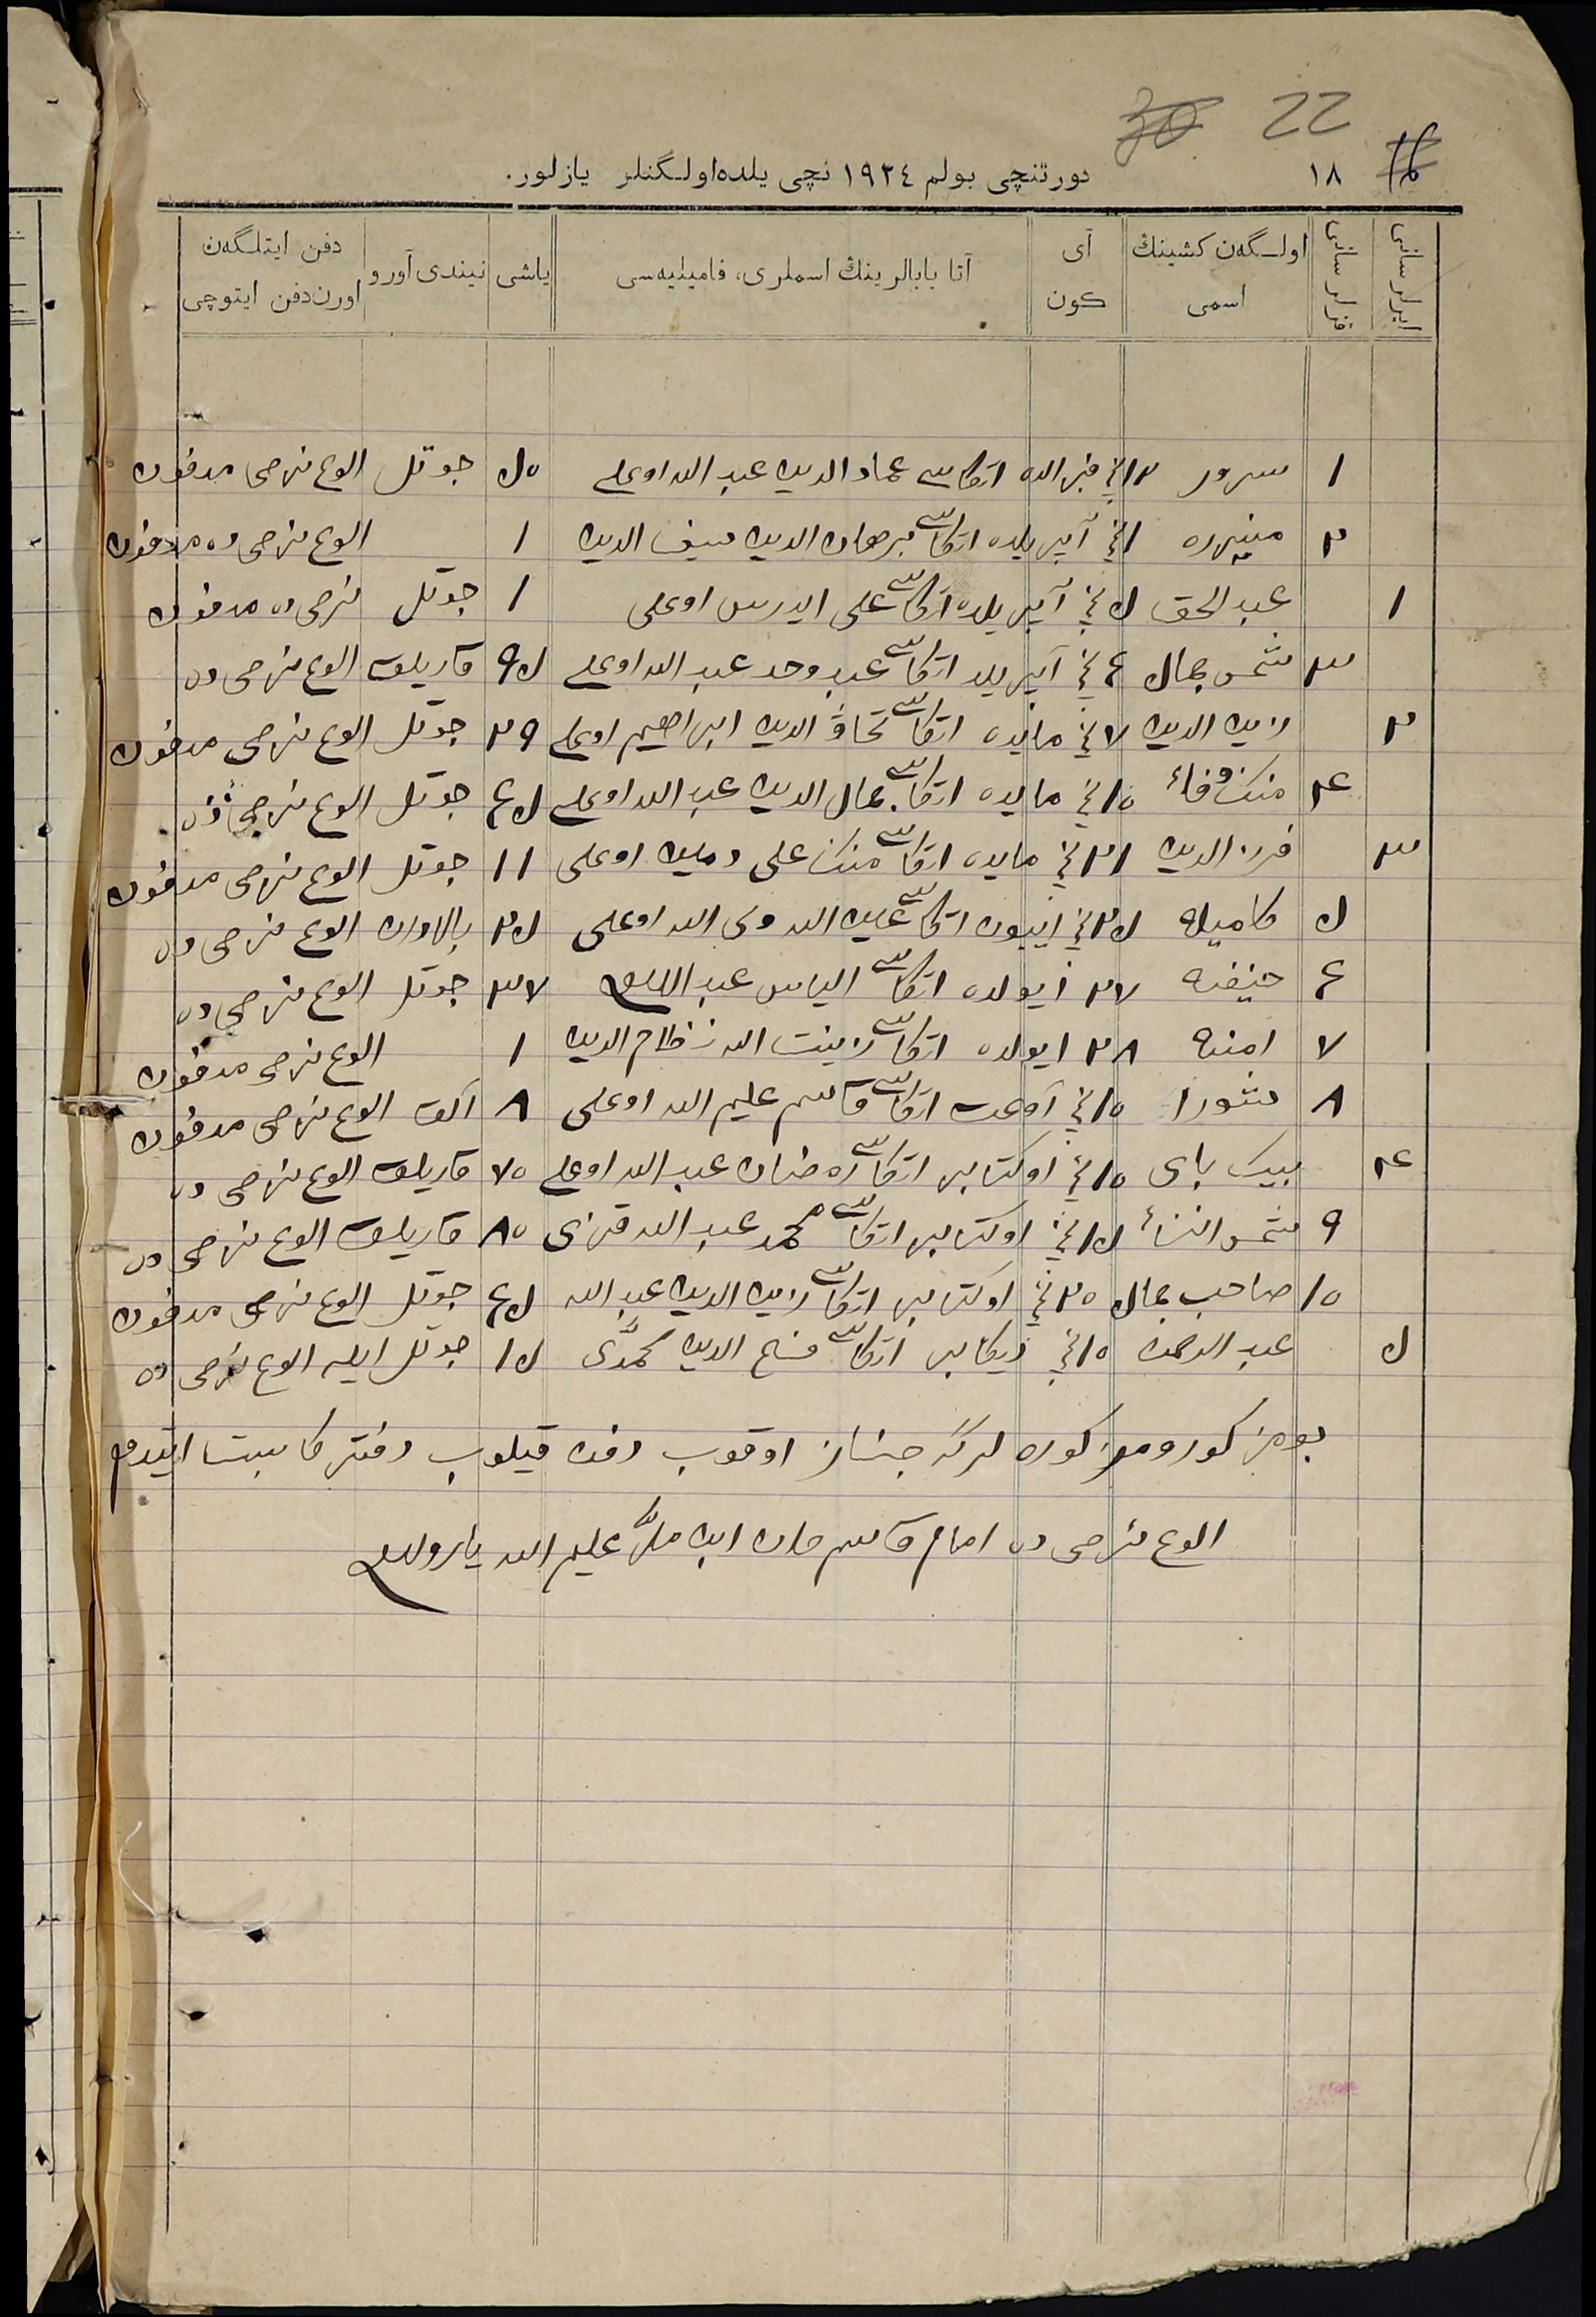 30 22
١٨ دورتنچی بولم ١٩٢٤ نچی یلده اولگنلر یازلور.
ایرلر سانی
قزلر سانی
اولـگەن کشینڭ اسمی
آی کون
آتا بابالرینڭ اسملری، فامیلیەسی
یاشی
نیندی آورو
دفن ایتلگەن اورن دفن ایتوچی
١ سرور ١٢ نچی فبرالده اتقاسی عماد الدین عبد الله اوغلی ٥٥ جوتل الوغ نرصی مدفون
٢ منیره ١ نچی آپریلده اتقاسی برهان الدین سیف الدین ١ الوغ نرصی ده مدفون
١ عبد الحق ٥ نچی آپریلده اتقاسی علی ایدرس اوغلی ١ جوتل نرصی ده مدفون
٣ شمس جمال ٤ نچی آپریلده اتقاسی عبد وحد عبد الله اوغلی ٥٩ قاریلق الوغ نرصی ده
٢ زین الدین ٧ نچی مایده اتقاسی تحاو الدین ابراهیم اوغلی ٢٩ جوتل الوغ نرصی مدفون
٤ منك وفاء ١٥ نچی مایده اتقاسی جمال الدین عبد الله اوغلی ٤٥ جوتل الوغ نرصی ده
٣ فرز الدین ٢١ نچی مایده اتقاسی منك علی ومین اوغلی ١١ جوتل الوغ نرصی مدفون
٥ کامیله ٢٥ نچی اییون اتقاسی عین الله ولی الله اوغلی ٢٥ بالادان الوغ نرصی ده
٦ حنیفه ٢٧ ایولده اتقاسی الیاس عبد الله ٣٧ جوتل الوغ نرصی ده
٧ امنه ٢٨ ایولده اتقاسی زینت الله نظام الدین ١ الوغ نرصی مدفون
٨ شورا ١٥ نچی آوغست اتقاسی قاسم علیم الله اوغلی ٨ الوغ نرصی مدفون
٤ بیك بای ١٥ نچی اوکتابر اتقاسی رمضان عبد الله اوغلی ٧٥ قاریلق الوغ نرصی ده
٩ شمس النساء ١٥ نچی اوکتابر اتقاسی محمد عبد الله قزی ٨٥ قاریلق الوغ نرصی ده
١٠ صاحب جمال ٢٥ نچی اوکتابر اتقاسی زین الدین عبد الله ٤٥ جوتل الوغ نرصی مدفون
٥ عبد الرحمن ١٥ نچی دیکابر اتقاسی فتح الدین محمدی ١٥ جوتل ایله الوغ نرصی ده
بو مزکور و مزکوره لرگه جنازه اوقوب دفن قیلوب دفترکا ثبت ایتدم
الوغ نرصی ده امام قاسم جان ابن ملا علیم الله یارولین